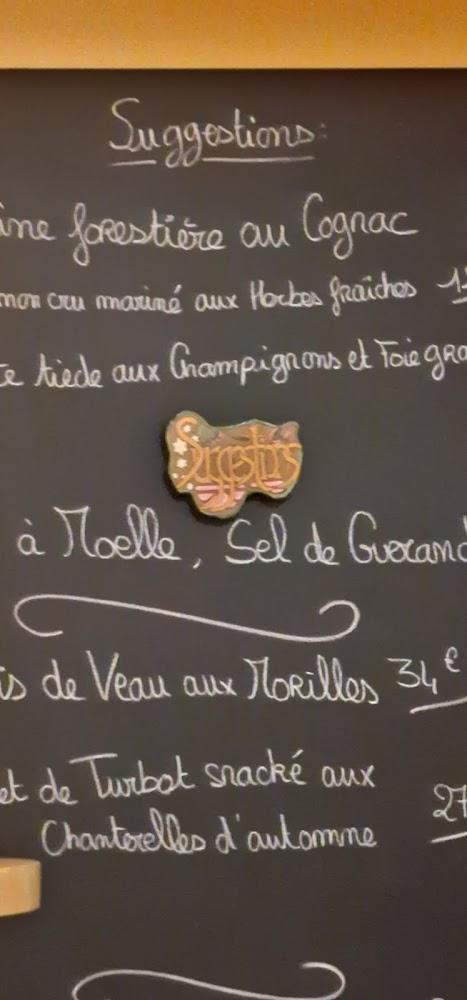 Suggestions:
ine forestière au Cognac
mon cru mariné aux Herbes fraîches
te tiède aux Champignons et Foie gra
Suggestions
à Moelle, Sel de Guérand
is de Veau aux Morilles 34€
et de Turbot snacké aux
Chanterelles d'automne 27